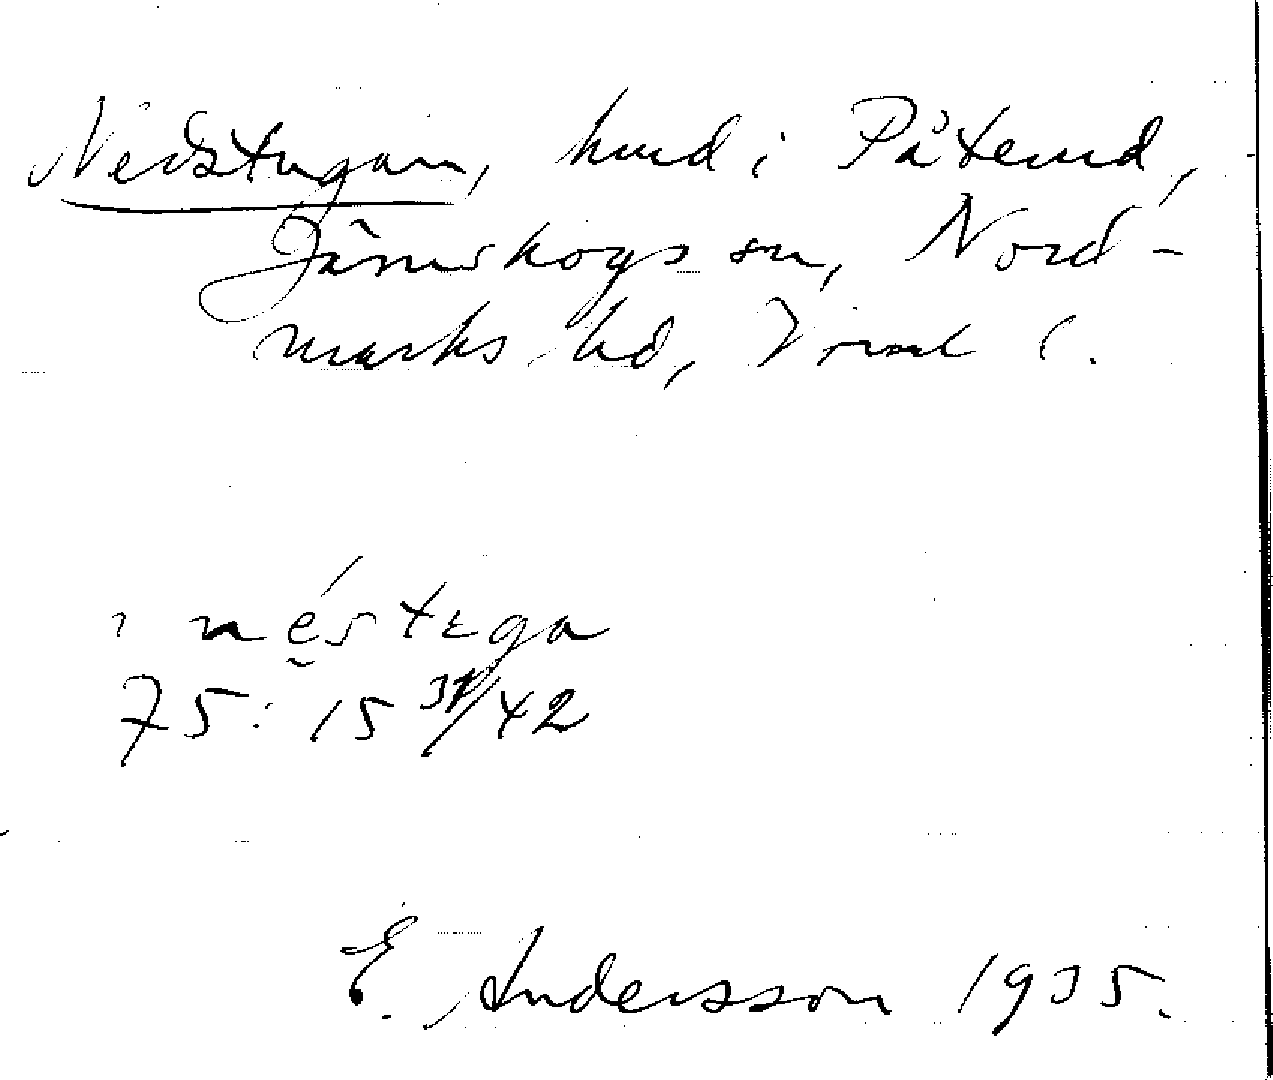 Nedstugan, hmd i Påterud,
Järnskogs sn, Nord-
marks hd, Vrml l.
i nésstɛga
75: 15 31/42
E. Andersson 1935.